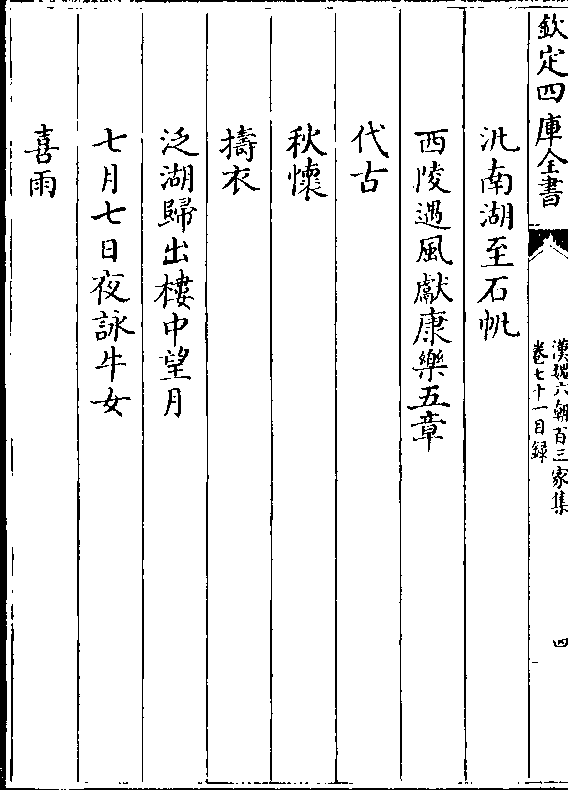 欽定四庫全書
漢魏六朝百三家集
卷七十一目錄
四
汎南湖至石帆
西陵遇風獻康樂五章
代古
秋懷
擣衣
泛湖歸出樓中望月
七月七日夜詠牛女
喜雨